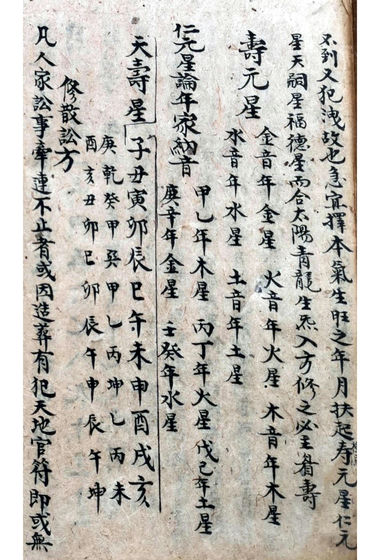 不到又犯洩故也急宜擇本氣生旺之年月扶起寿元星仁元
星天嗣星福德星而合太陽青龍生炁入方修之必主眉壽
壽元星
金音年金星 火音年火星 木音年木星
水音年水星 土音年土星
仁元星論年家納音
甲乙年木星 丙丁年火星 戊己年土星
庚辛年金星 壬癸年水星
天壽星 子丑寅卯辰巳午未申酉戌亥
庚乾癸甲癸甲乙丙坤乙丙未
酉亥丑卯巳卯辰午申辰午坤
修散訟方
凡人家訟事牽連不止者或因造葬有犯天地官符即或無